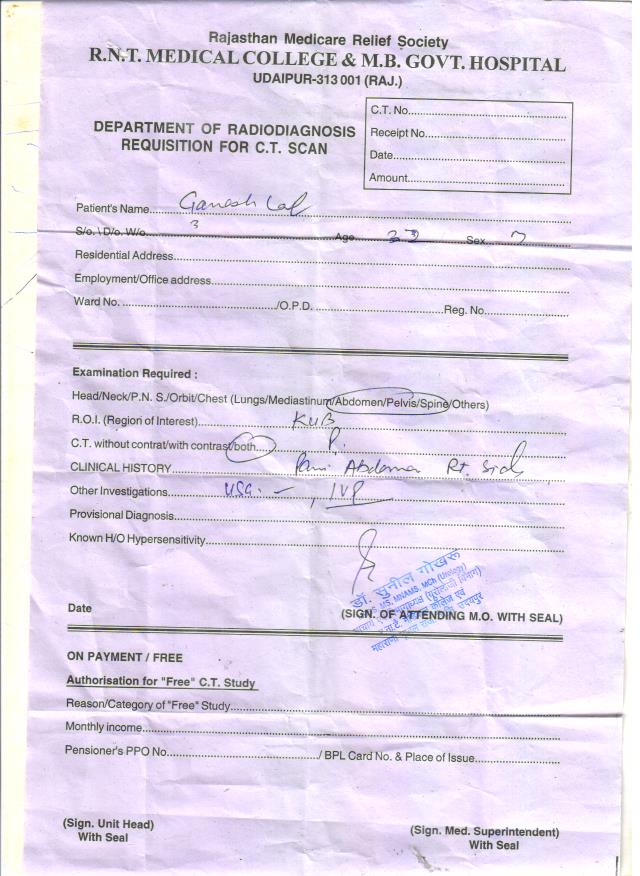 Rajasthan Medicare Relief Society
R.N.T. MEDICAL COLLEGE & M.B. GOVT. HOSPITAL
UDAIPUR-313 001 (RAJ.)
C.T. No.
DEPARTMENT OF RADIODIAGNOSIS
REQUISITION FOR C.T. SCAN
Receipt No.
Date
Amount
Patient's Name Ganesh Lal
S/o. \ D/o. W/o. Age Sex
Residential Address
Employment/Office address
Ward No. /O.P.D. Reg. No.
Examination Required :
Head/Neck/P.N. S./Orbit/Chest (Lungs/Mediastinum/Abdomen/Pelvis/Spine/Others)
R.O.I. (Region of Interest) KUB
C.T. without contrat/with contrast/both
CLINICAL HISTORY Pain Abdomen Rt. Side
Other Investigations USG - , IVP
Provisional Diagnosis
Known H/O Hypersensitivity
डॉ. सुनील गोखरू
MS, MNAMS, MCh (Urology)
Date (SIGN. OF ATTENDING M.O. WITH SEAL)
ON PAYMENT / FREE
Authorisation for "Free" C.T. Study
Reason/Category of "Free" Study
Monthly income
Pensioner's PPO No. / BPL Card No. & Place of Issue
(Sign. Unit Head) (Sign. Med. Superintendent)
With Seal With Seal